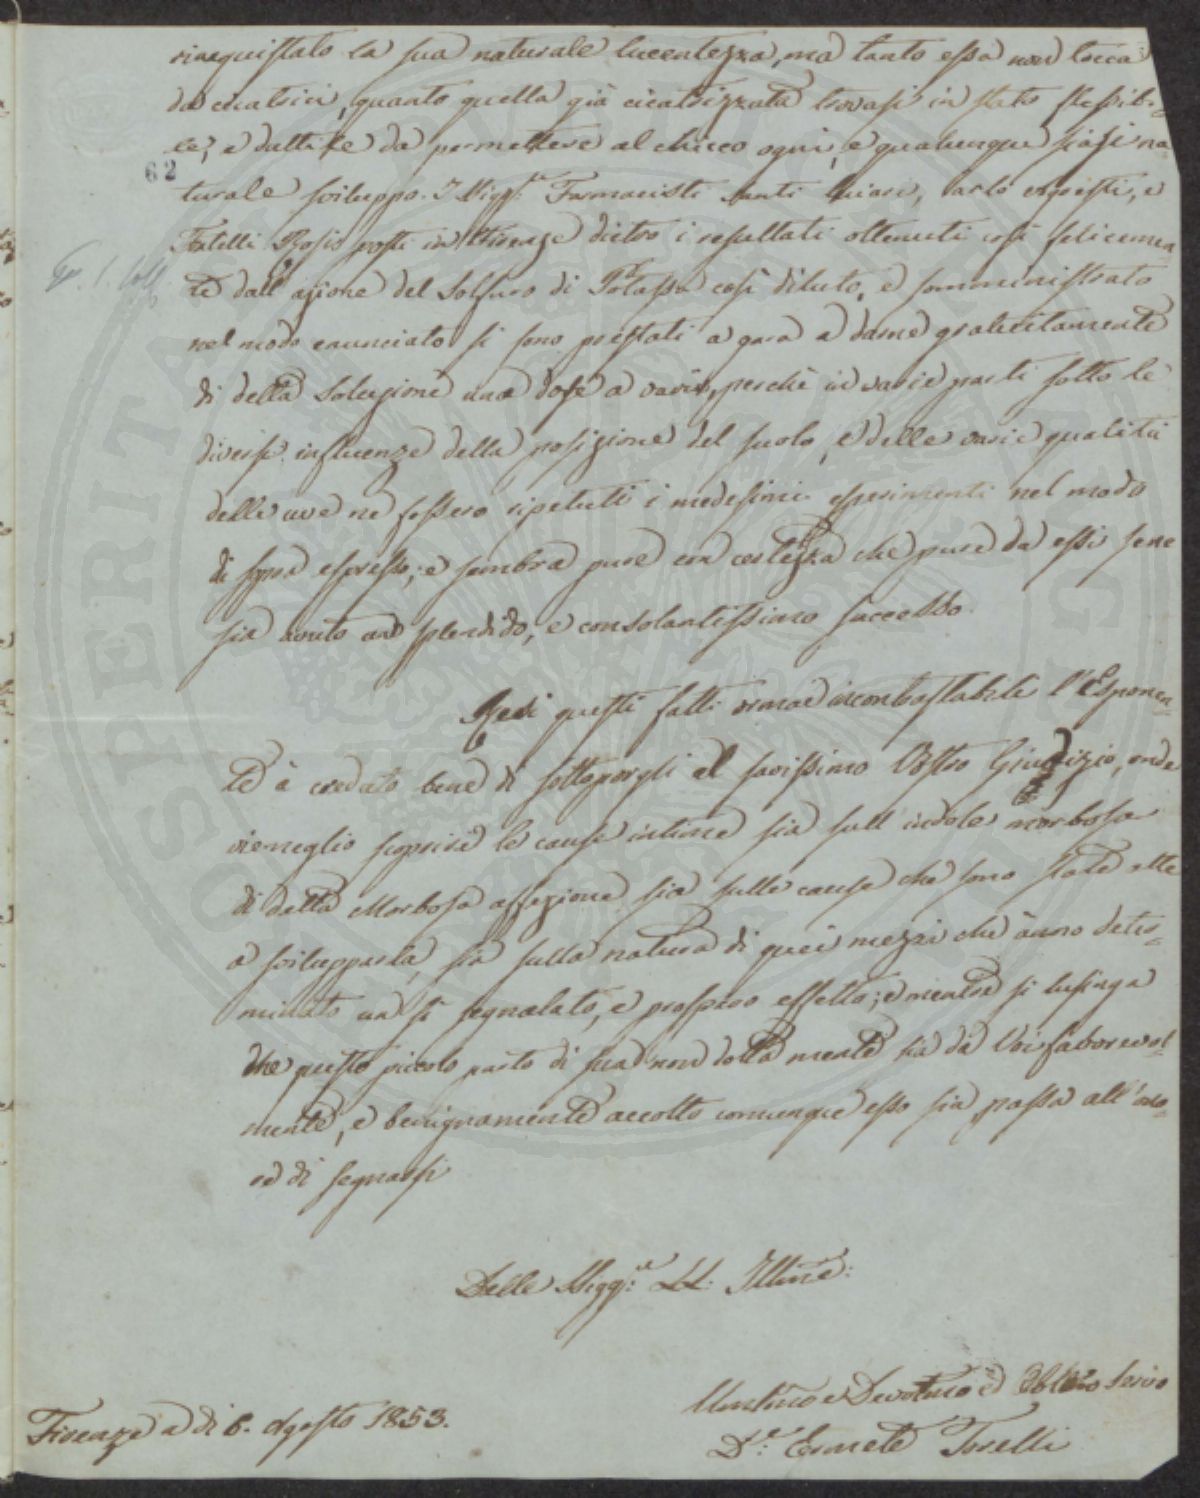 riacquistato la sua naturale lucentezza, ma tanto essa non tocca
da cicatrici, quanto quella già cicatrizzata trovasi in stato flessibi-
le, e duttile da permettere al chicco ogni, e qualunque siasi na-
62
turale sviluppo. I Sigg:ri Farmacisti Santi, Carlo, e
Fratelli posti in Firenze dietro i resultati ottenuti così felicemen-
te dall'azione del Solfuro di Potassa così diluto, e somministrato
nel modo enunciato si sono prestati a gara a darne gratuitamente
di detta Soluzione una dose a varii, perchè in varie parti sotto le
diverse influenze della posizione del suolo, e delle varie qualità
delle uve ne fossero ripetuti i medesimi esperimenti nel modo
di sopra espresso; e sembra pure con certezza che pure da essi sene
sia avuto un splendido, e consolantissimo successo.
Resi questi fatti ormai incontrastabili l'Esponen-
te à creduto bene di sottoporgli al savissimo Vostro Giudizio, onde
viemeglio scoprire le cause intime sia sull'indole morbosa
di detta Morbosa affezione sia sulle cause che sono state atte
a svilupparla, sia sulla natura di quei mezzi che ànno deter-
minato un sì segnalato, e prospero effetto; e mentre si lusinga
che questo piccolo parto di sua non dotta mente sia da Voi favorevol-
mente, e benignamente accolto comunque esso sia, passa all'ono-
re di segnarsi
Delle Sigg:rie LL: Illme:
Umilmo e Devotmo ed Obblmo Servo
Firenze a dì 6. Agosto 1853.
D:r Ermete Torelli